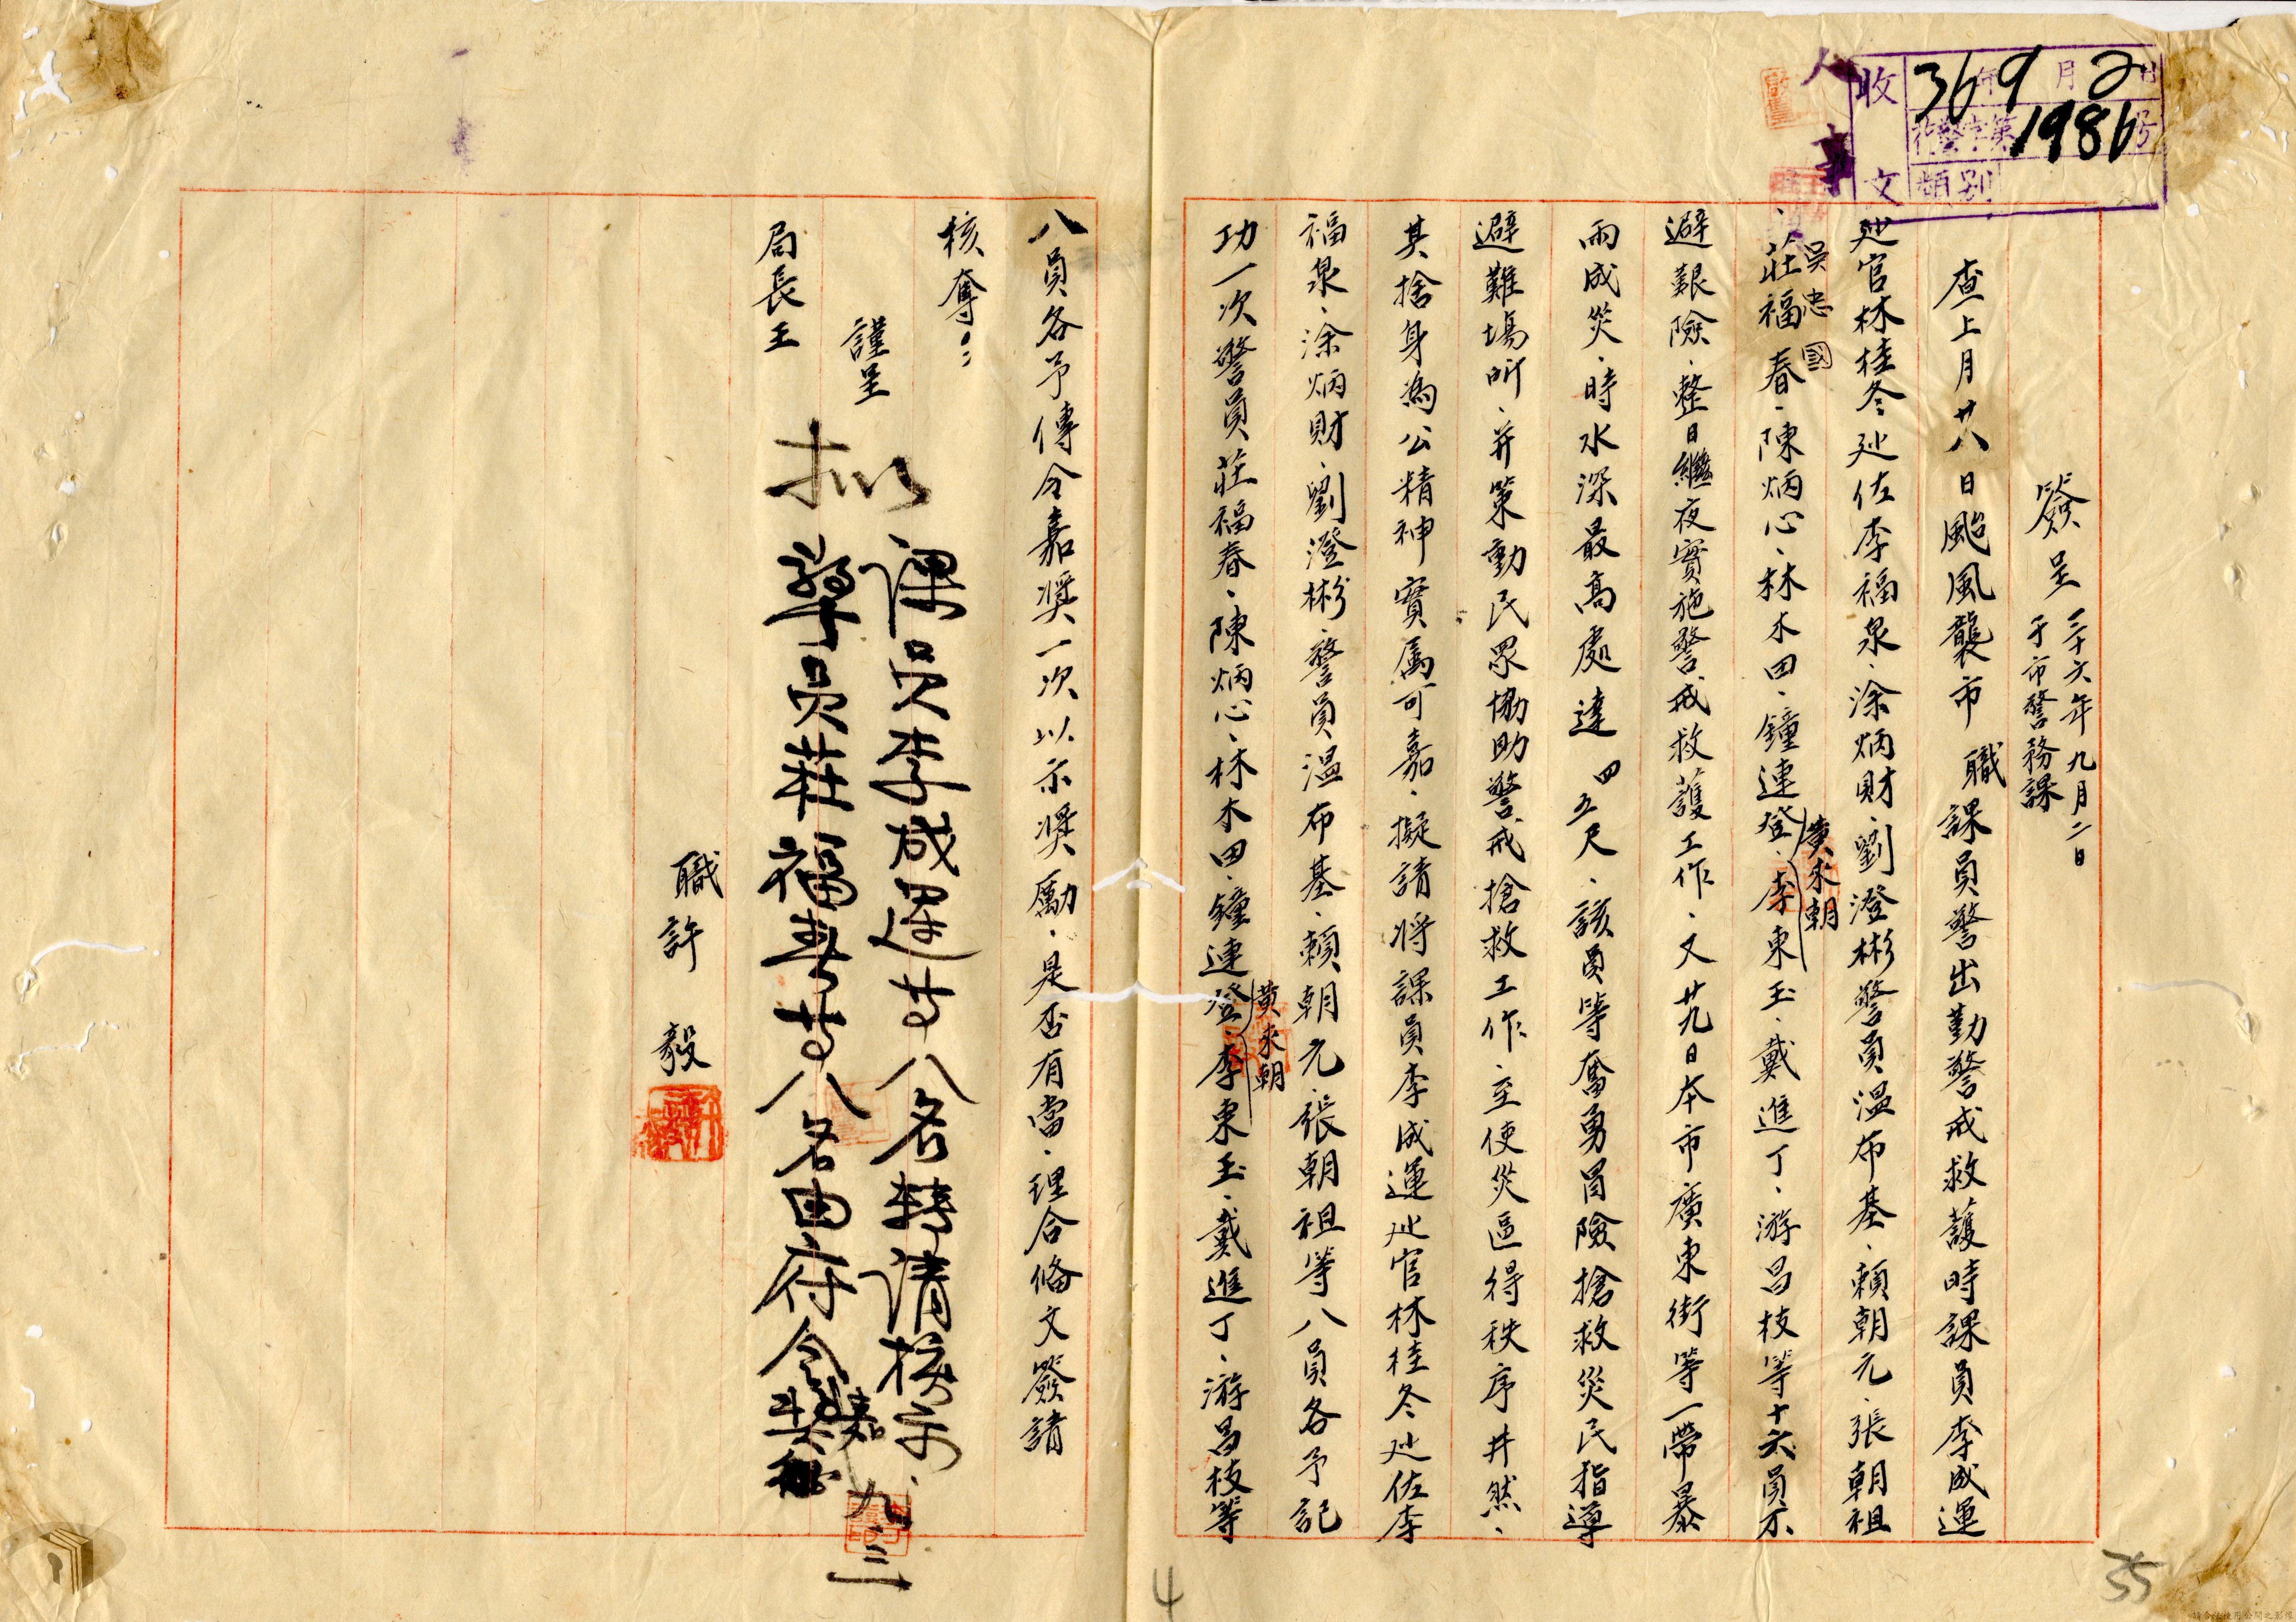 收文
36年9月2日
警字第1986号
類別
人事
簽呈 三十六年九月二日
于市警務課
查上月廿八日颱風襲市職課員警出勤警戒救護時課員李成運
巡官林桂冬巡佐李福泉、涂炳財、劉澄彬警員温布基、賴朝元、張朝祖
吳忠國
、莊福春、陳炳心、林木田、鐘連登、李東玉、戴進丁、游昌枝等十六員不
黃來朝
避艱險、整日繼夜實施警戒救護工作、又廿九日本市廣東街等一帶暴
雨成災、時水深最高處達四五尺、該員等奮勇冒險搶救災民指導
避難場所、并策動民眾協助警戒搶救工作、至使災區得秩序井然、
其捨身為公精神實屬可嘉、擬請將課員李成運巡官林桂冬巡佐李
福泉、涂炳財、劉澄彬、警員温布基、賴朝元、張朝祖等八員各予記
功一次警員莊福春、陳炳心、林木田、鐘連登、李東玉、戴進丁、游昌枝等
黃來朝
八員各予傳令嘉奬一次以示奬勵、是否有當、理合俻文簽請
核奪！
謹呈
局長王
職許毅
擬
課員李成運等八名轉請核示、
警員莊福春等八名由府令嘉奬
九、三
4
35